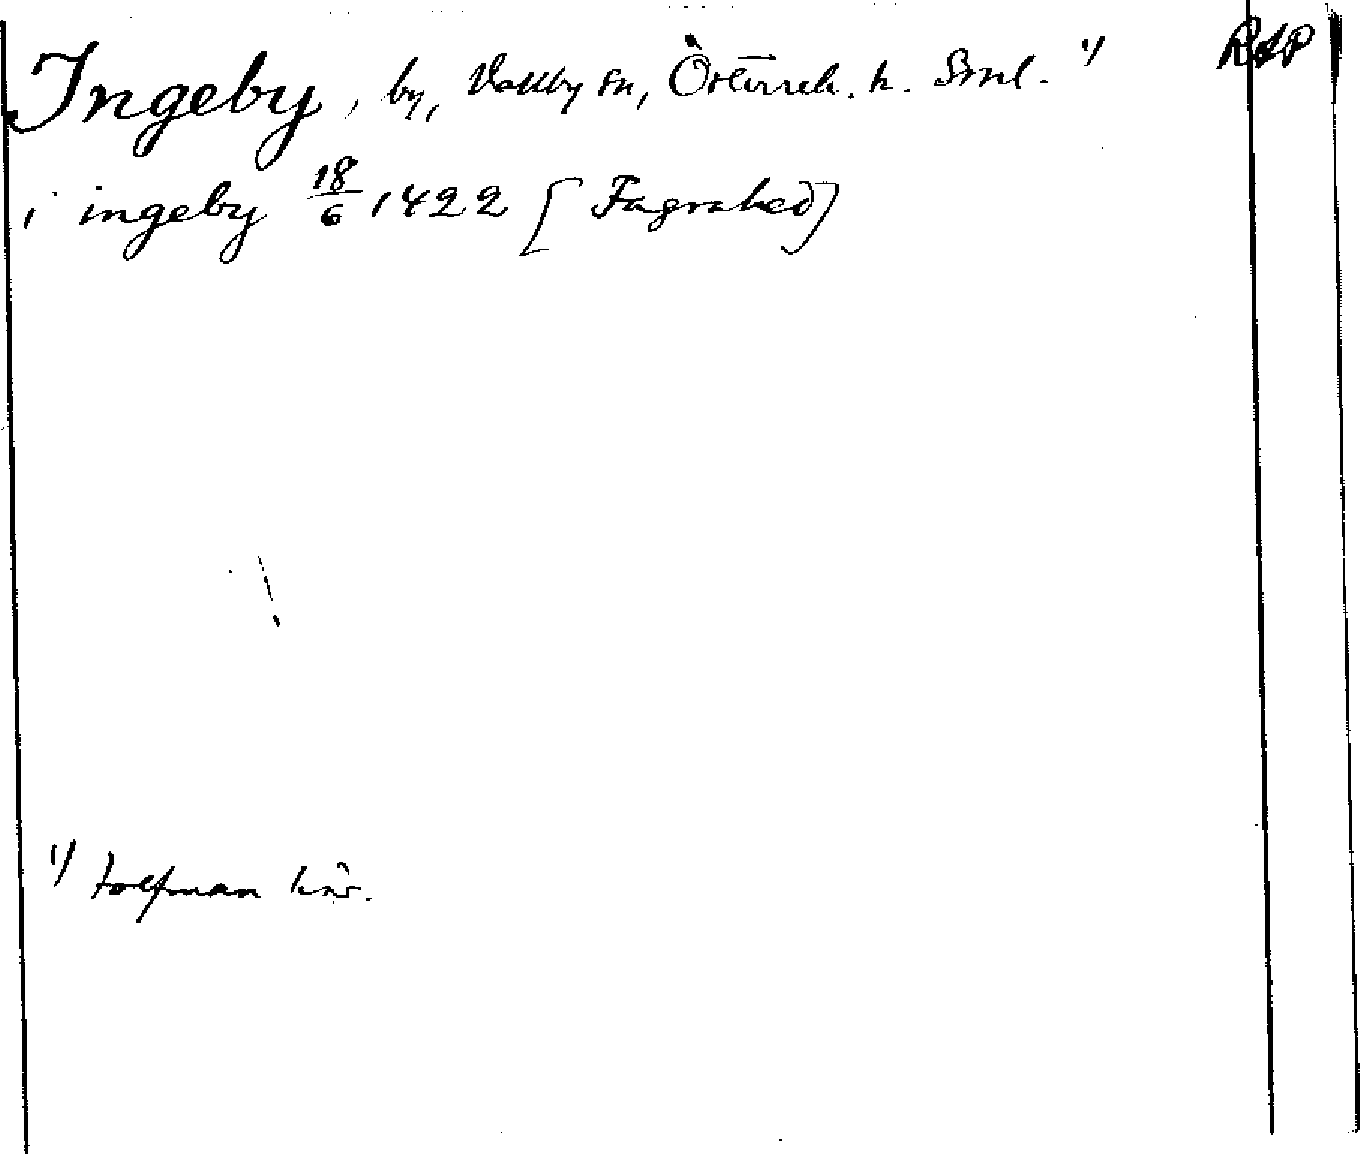 Ingeby, by, Vallby sn, Österrek. h. Sml. 1) RAP
i ingeby 18/6 1422 [Fagrahed]
1) tolfman här.